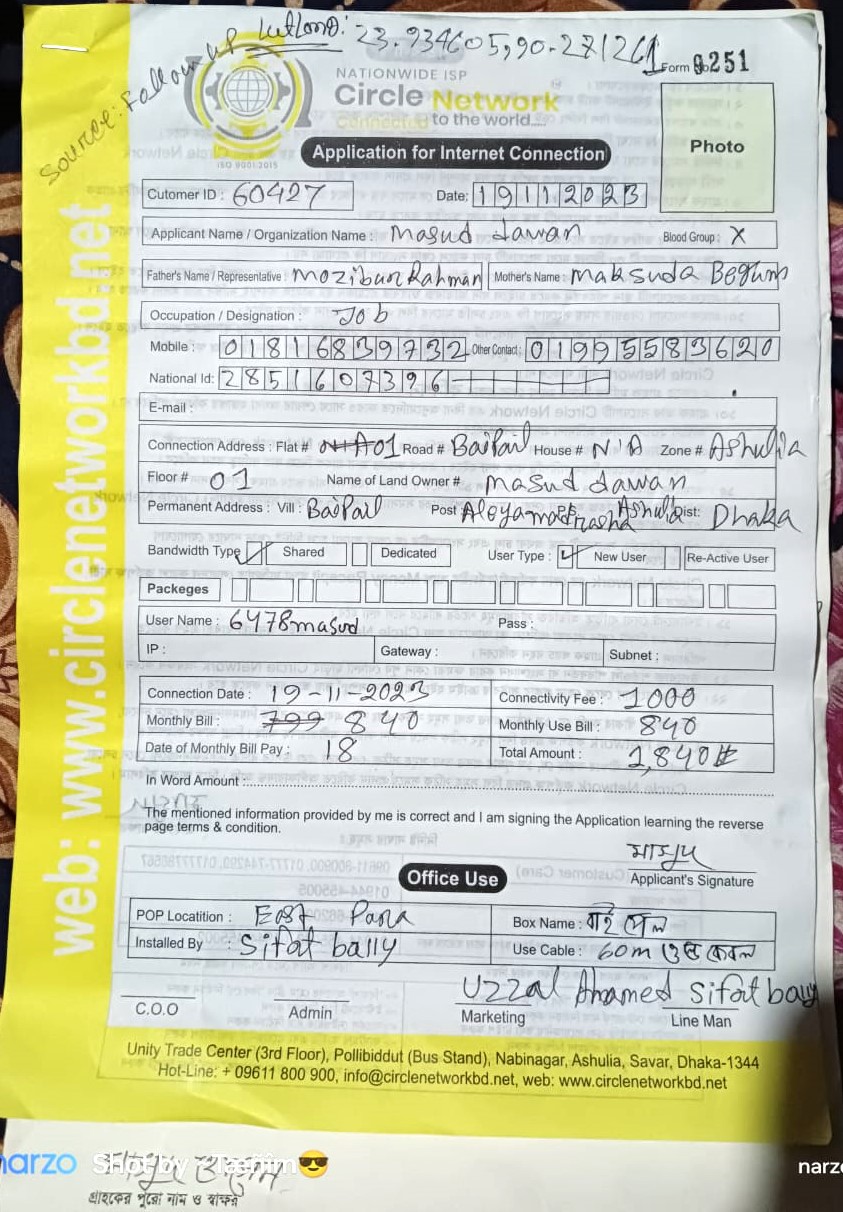 Source: Follow up Lutlong: 23.934605,90.271261
Form No 9251
NATIONWIDE ISP
Circle Network
Connected to the world....
ISO 9001:2015
Photo
Application for Internet Connection
Cutomer ID : 60427 Date: 19112023
Applicant Name / Organization Name : Masud dawan Blood Group : X
Father's Name / Representative : Mozibur Rahman Mother's Name : Maksuda Begum
Occupation / Designation : Job
Mobile : 01816839732 Other Contact: 01995583620
National Id: 2851607396
E-mail :
Connection Address : Flat # 01 Road # Baipail House # N/A Zone # Ashulia
Floor # 01 Name of Land Owner # Masud dawan
Permanent Address : Vill : Baipail Post Aleyamadrasha Ashulia Dist: Dhaka
Bandwidth Type Shared Dedicated User Type : New User Re-Active User
Packeges
User Name : 6478masud Pass :
IP : Gateway : Subnet :
Connection Date : 19-11-2023 Connectivity Fee : 1000
Monthly Bill : 799 840 Monthly Use Bill : 840
Date of Monthly Bill Pay : 18 Total Amount : 1,840
In Word Amount :
The mentioned information provided by me is correct and I am signing the Application learning the reverse
page terms & condition.
মাসুদ
Applicant's Signature
Office Use
POP Locatition : East Para Box Name :
Installed By : Sifat bally Use Cable : 60m
Uzzal Ahamed Sifat bally
C.O.O Admin Marketing Line Man
Unity Trade Center (3rd Floor), Pollibiddut (Bus Stand), Nabinagar, Ashulia, Savar, Dhaka-1344
Hot-Line: + 09611 800 900, info@circlenetworkbd.net, web: www.circlenetworkbd.net
web: www.circlenetworkbd.net
narzo Shot by Taeñim😎 narzo
গ্রাহকের পুরো নাম ও স্বাক্ষর